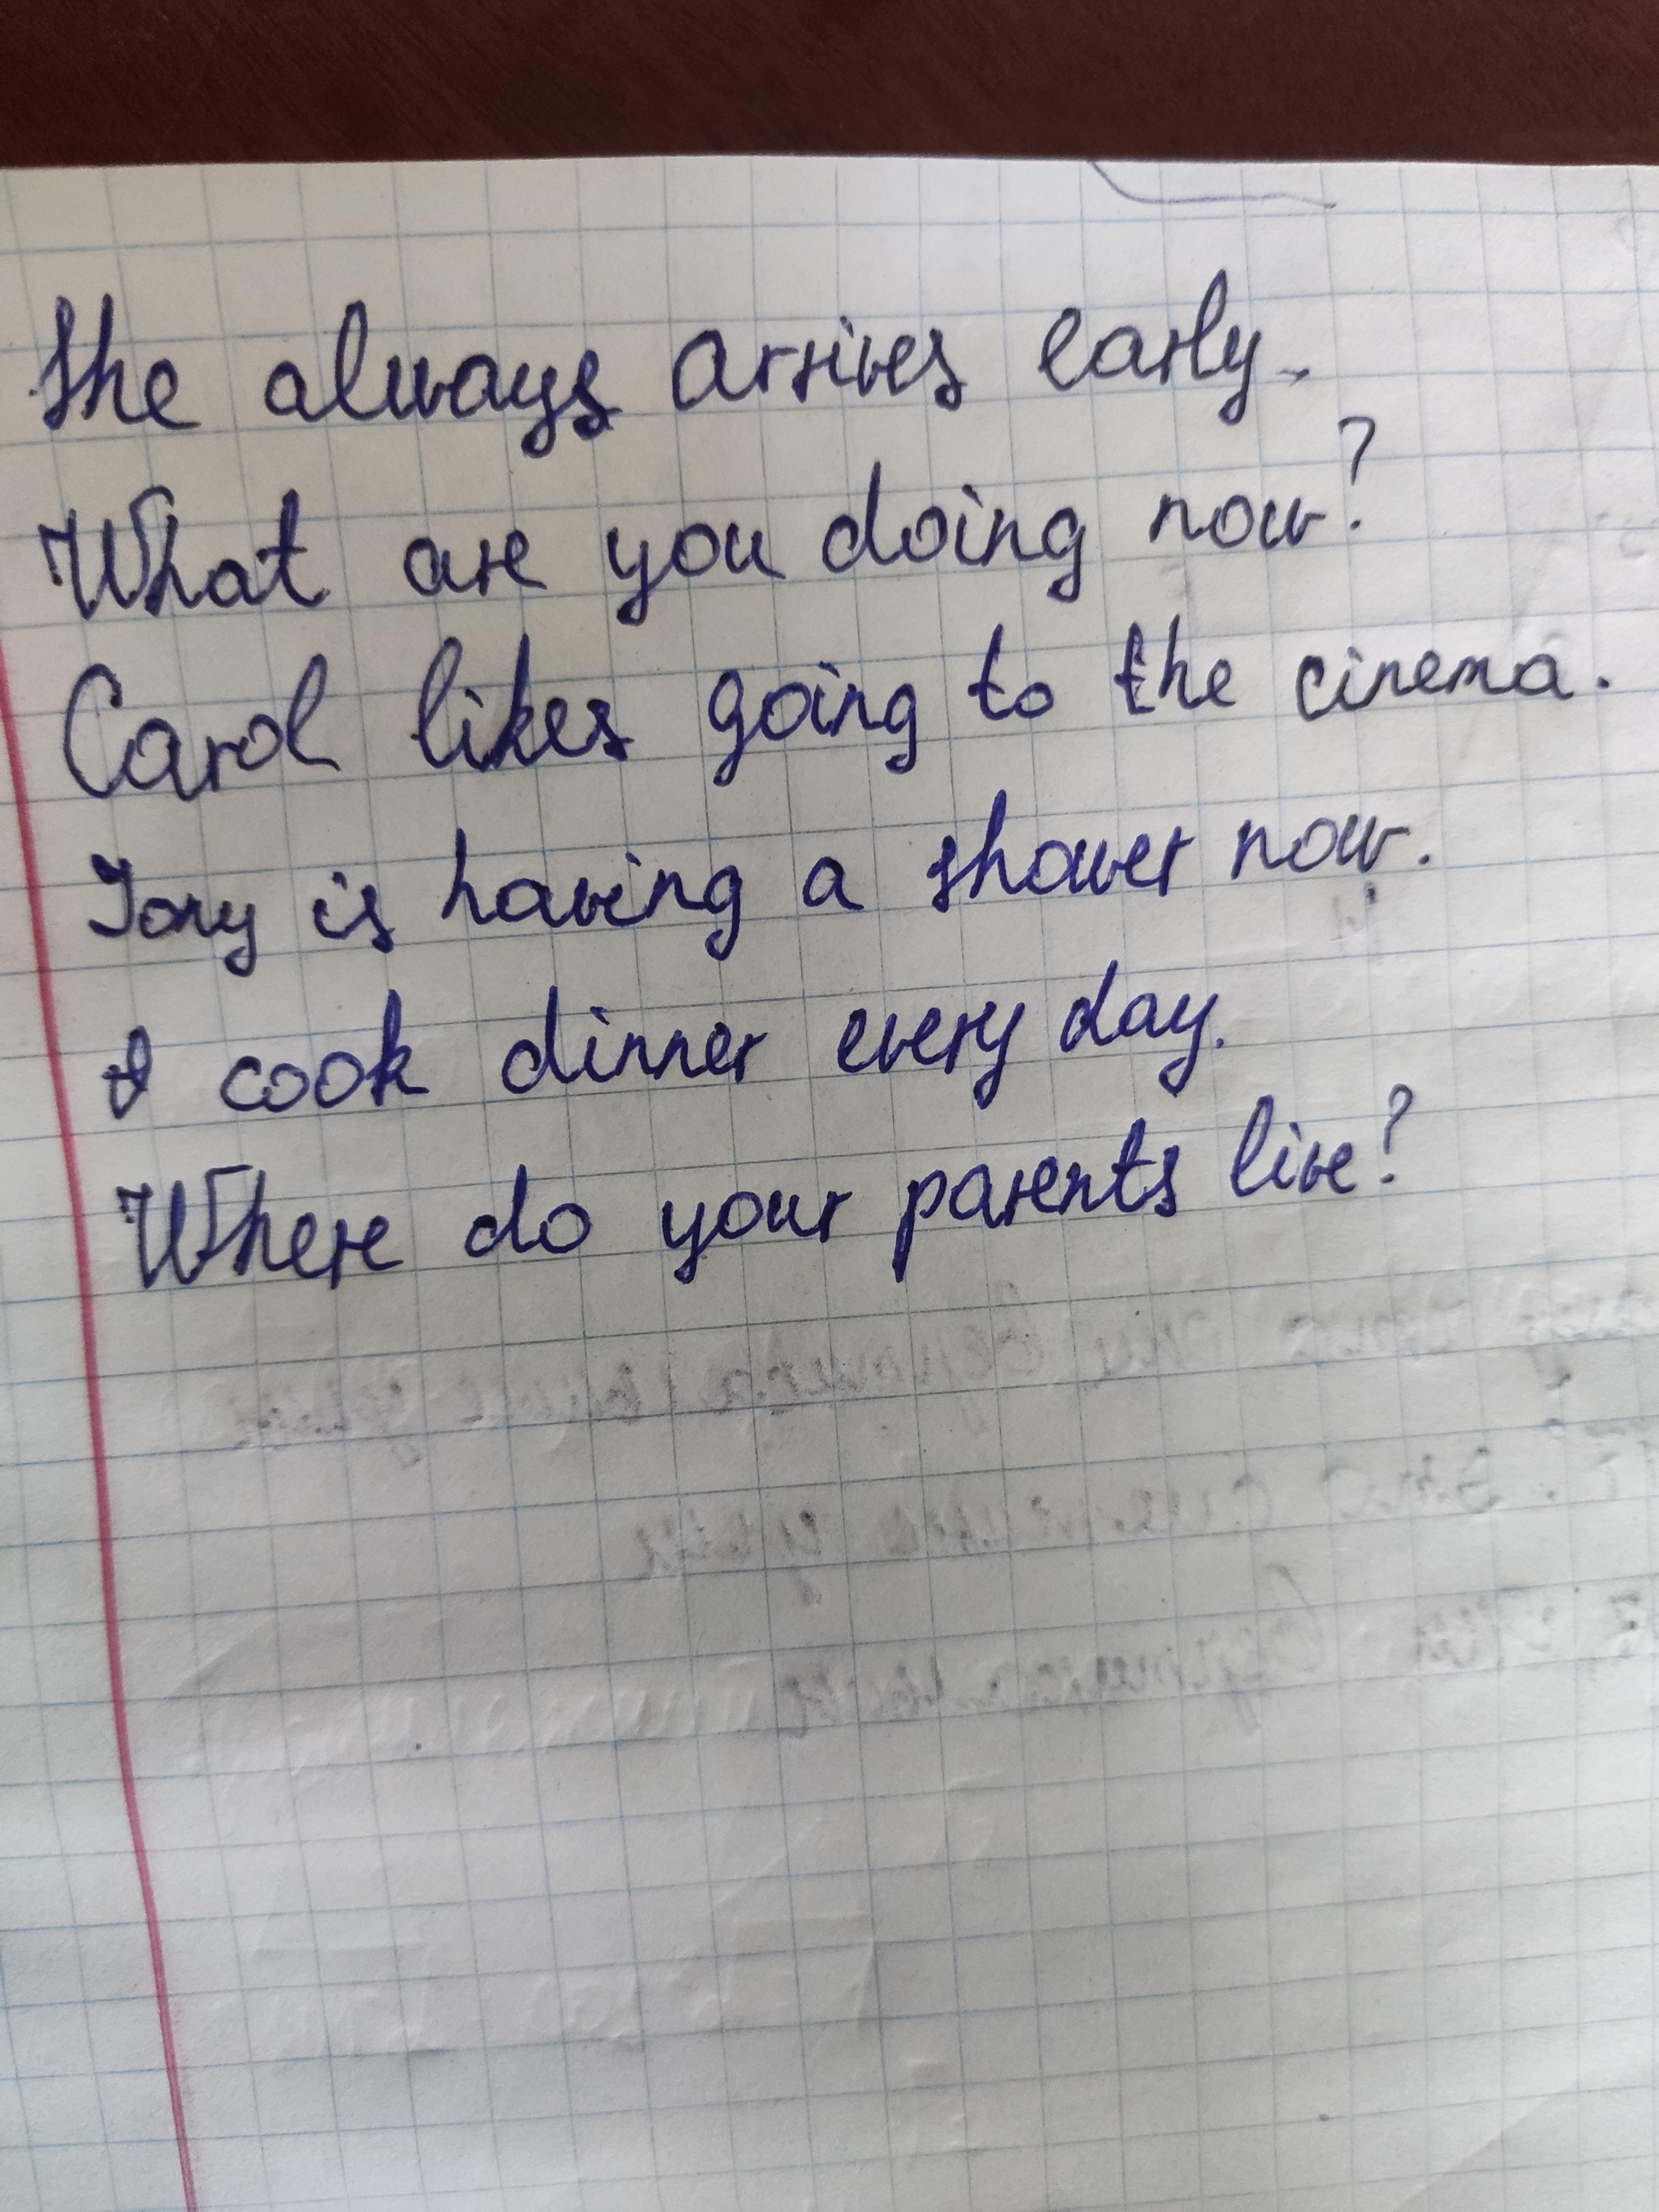 She always arrives early.
What are you doing now?
Carol likes going to the cinema.
Tony is having a shower now.
I cook dinner every day.
Where do your parents live?